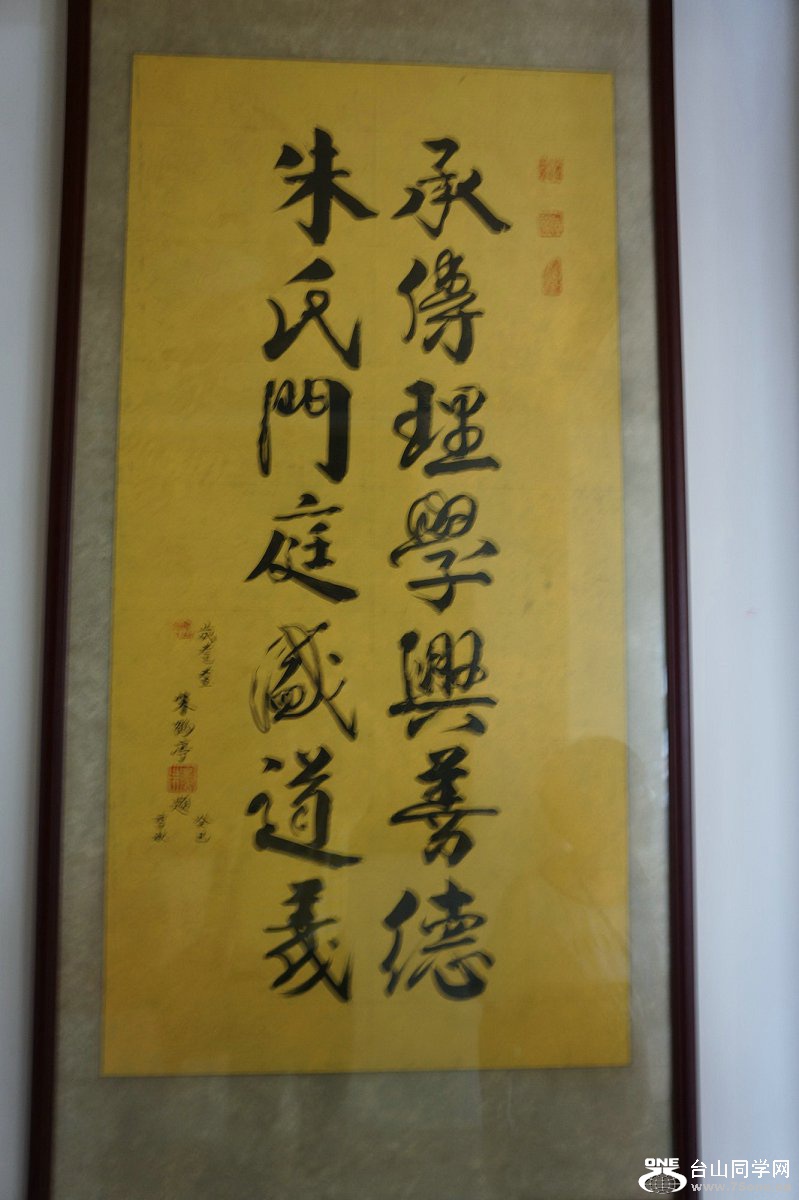 承傳理學興善德
朱氏門庭盛道義
朱鶴亭
題
癸巳
ONE
台山同学网